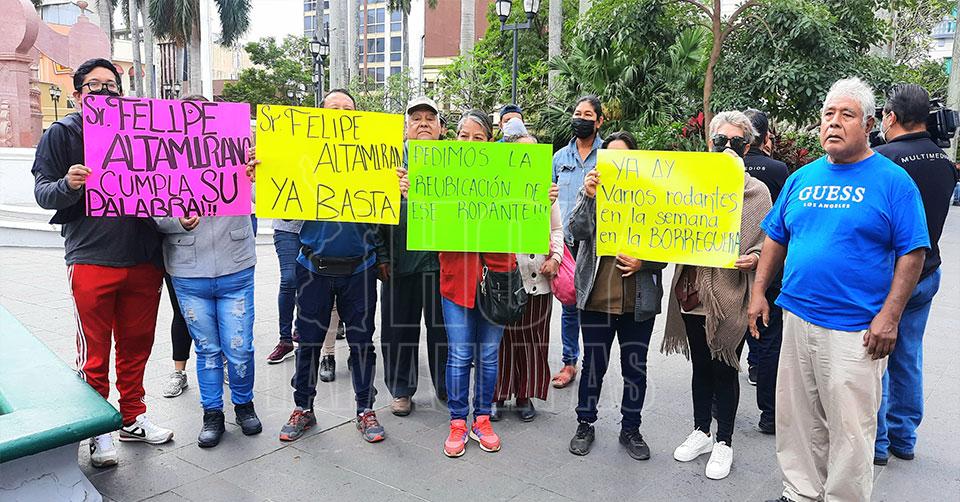 Sr. FELIPE
ALTAMIRANO
CUMPLA SU
PALABRA!!!
Sr. FELIPE
ALTAMIRAN
YA BASTA
PEDIMOS LA
REUBICACIÓN DE
ESE RODANTE!!!
YA AY
Varios rodantes
en la semana
en la BORREGUERA
GUESS
LOS ANGELES
MULTIMEDI
HOY
TAMAULIPAS